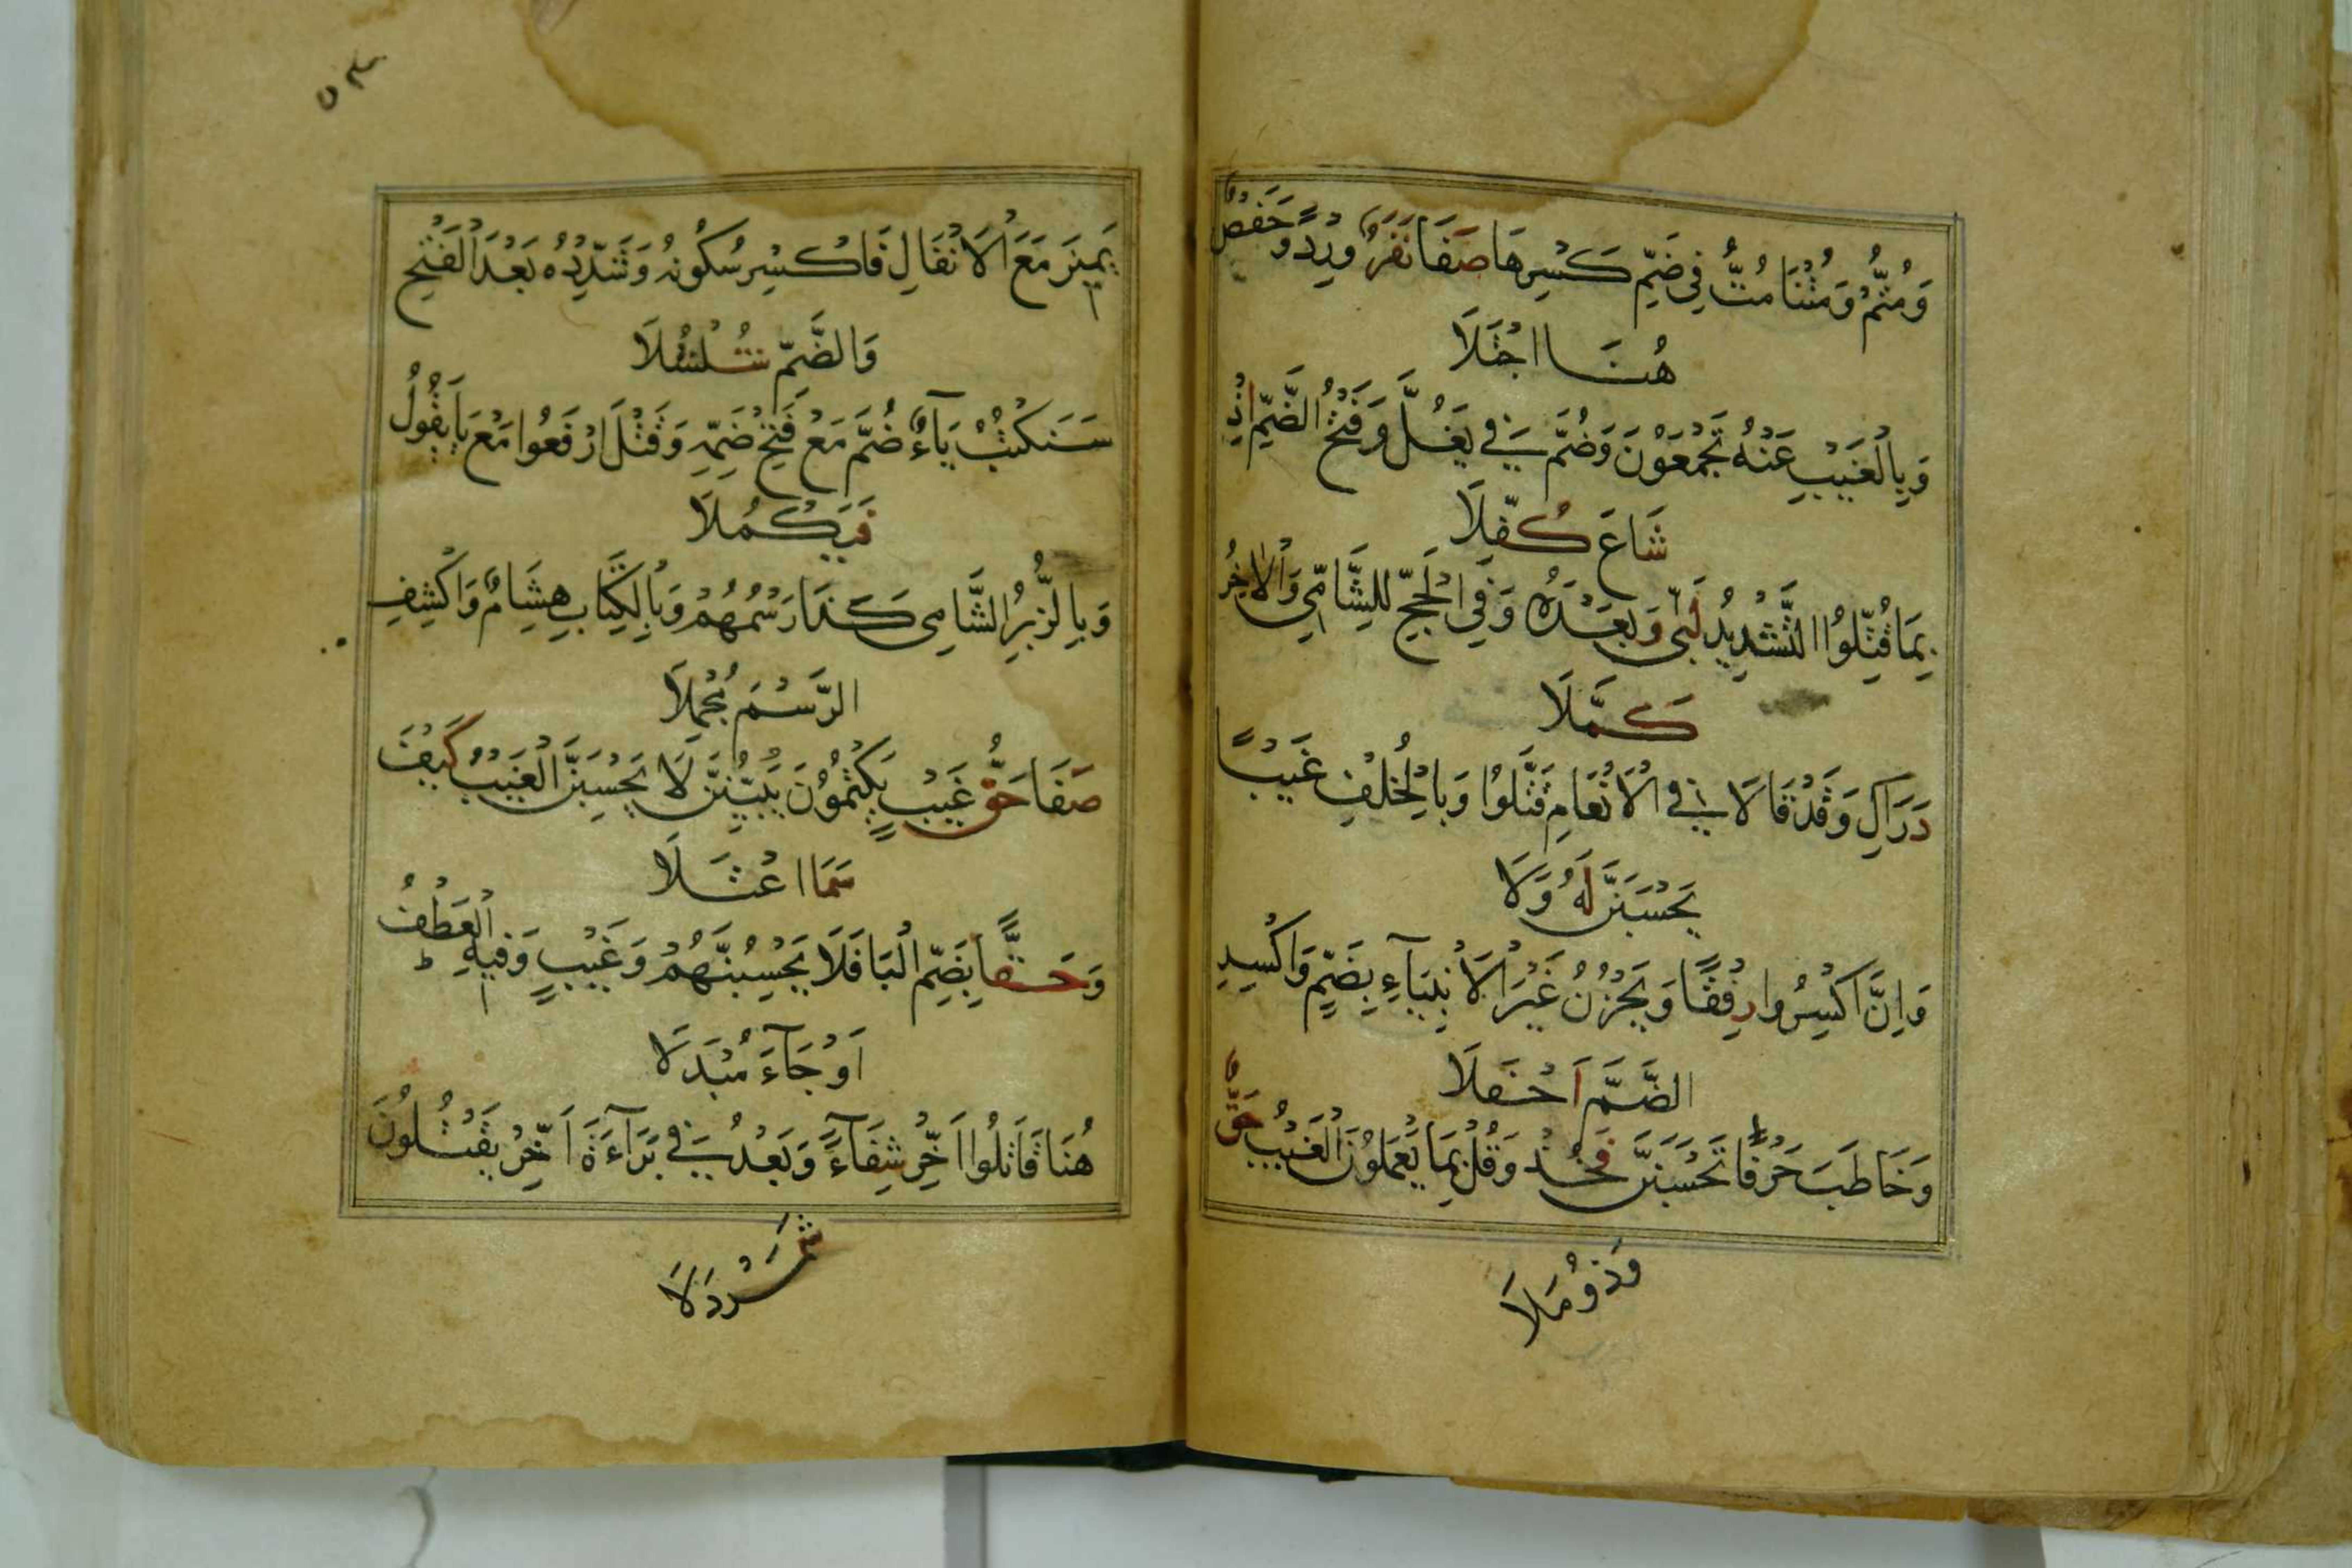 وَمُتُّمْ وَمُتْنَا مُتُّ فِي ضَمِّ كَسْرِهَا صَفَا نَفَرٌ وِرْدًا وَحَفْصٌ
هُنَا اجْتَلَا
وَبِالْغَيْبِ عَنْهُ تَجْمَعُونَ وَضُمَّ فِي يَغُلَّ وَفَتْحُ الضَّمِّ اِذْ
شَاعَ كُفِّلَا
بِمَا قُتِّلُوا التَّشْدِيدُ لَبَّى وَبَعْدَهُ وَفِي الْحَجِّ لِلشَّامِي وَالْاٰخِرُ
كَمَّلَا
دَرَاكِ وَقَدْ قَالَا فِي الْاَنْعَامِ قَتَّلُوا وَبِالْخُلْفِ غَيْبًا
يَحْسَبَنَّ لَهُ وَلَا
وَاِنَّ اكْسِرُوا رِفْقًا وَيَحْزُنُ غَيْرَ الْاَنْبِيَآءِ بِضَمٍّ وَاكْسِرِ
الضَّمَّ اَحْفَلَا
وَخَاطَبَ حَرْفًا تَحْسَبَنَّ فَخُذْ وَقُلْ بِمَا يَعْمَلُونَ الْغَيْبُ حَقٌّ
وَذُو مَلَا
٥٤
يَمِيزَ مَعَ الْاَنْفَالِ فَاكْسِرْ سُكُونَهُ وَشَدِّدْهُ بَعْدَ الْفَتْحِ
وَالضَّمِّ شُلْشُلَا
سَنَكْتُبُ يَآءٌ ضُمَّ مَعْ فَتْحِ ضَمِّهِ وَقَتْلَ ارْفَعُوا مَعْ يَا يَقُولُ
فَيَكْمُلَا
وَبِالزُّبُرِ الشَّامِي كَذَا رَسْمُهُمْ وَبِالْكِتَابِ هِشَامٌ وَاكْشِفِ
الرَّسْمَ مُجْمِلَا
صَفَا حَقُّ غَيْبٍ يَكْتُمُونَ يُبَيِّنُنَّ لَا يَحْسِبَنَّ الْغَيْبُ كَيْفَ
سَمَا اعْتَلَا
وَحَقًّا بِضَمِّ الْبَا فَلَا يَحْسِبُنَّهُمْ وَغَيْبٍ وَفِيهِ الْعَطْفُ
اَوْ جَآءَ مُبْدَلَا
هُنَا قَاتَلُوا اَخِّرْ شِفَآءً وَبَعْدُ فِي بَرَآءَةَ اَخِّرْ يَقْتُلُونَ
شَمَرْدَلَا